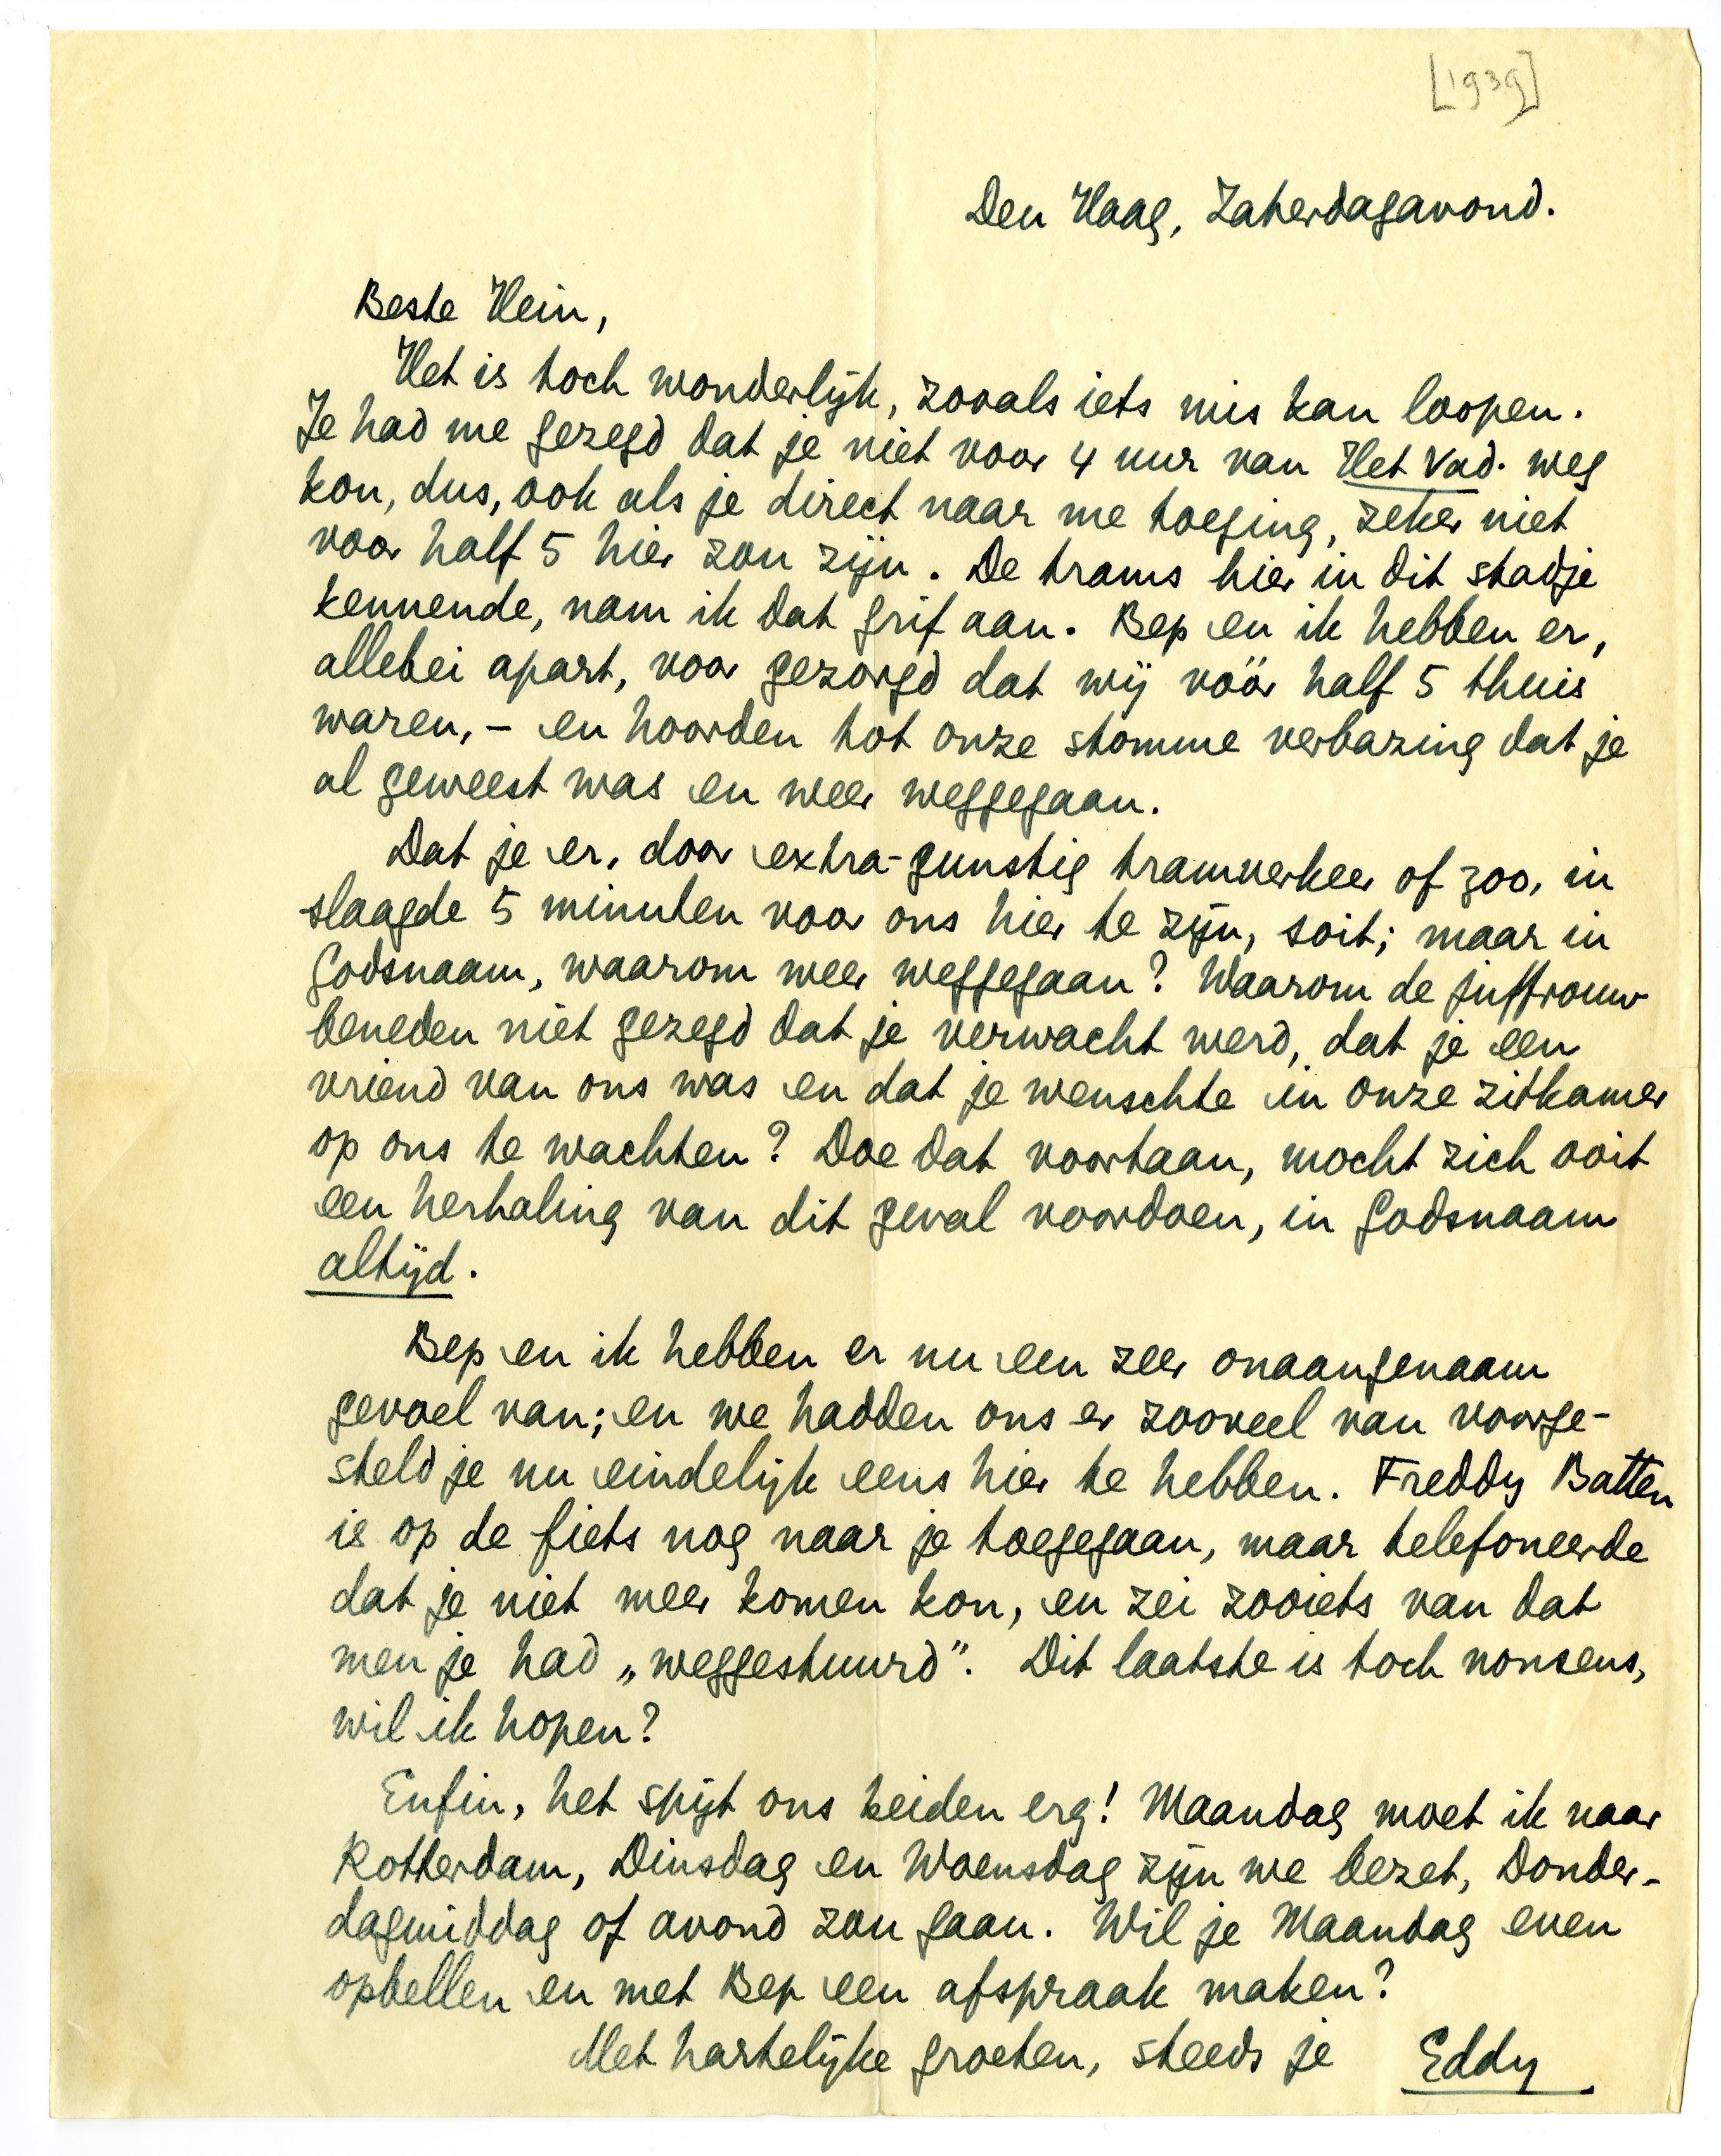 [1939]
Den Haag, Zaterdagavond.
Beste Hein,
Het is toch wonderlijk, zooals iets mis kan loopen.
Je had me gezegd dat je niet voor 4 uur van Het Vad. weg
kon, dus, ook als je direct naar me toeging, zeker niet
voor half 5 hier zou zijn. De trams hier in dit stadje
kennende, nam ik dat grif aan. Bep en ik hebben er,
allebei apart, voor gezorgd dat wij vóór half 5 thuis
waren, – en hoorden tot onze stomme verbazing dat je
al geweest was en weer weggegaan.
Dat je er, door extra-gunstig tramverkeer of zoo, in
slaagde 5 minuten voor ons hier te zijn, soit; maar in
Godsnaam, waarom weer weggegaan? Waarom de juffrouw
beneden niet gezegd dat je verwacht werd, dat je een
vriend van ons was en dat je wenschte in onze zitkamer
op ons te wachten? Doe dat voortaan, mocht zich ooit
een herhaling van dit geval voordoen, in Godsnaam
altijd.
Bep en ik hebben er nu een zeer onaangenaam
gevoel van; en we hadden ons er zooveel van voorge-
steld je nu eindelijk eens hier te hebben. Freddy Batten
is op de fiets nog naar je toegegaan, maar telefoneerde
dat je niet meer komen kon, en zei zooiets van dat
men je had „weggestuurd”. Dit laatste is toch nonsens,
wil ik hopen?
Enfin, het spijt ons beiden erg! Maandag moet ik naar
Rotterdam, Dinsdag en Woensdag zijn we bezet, Donder-
dagmiddag of avond zou gaan. Wil je Maandag even
opbellen en met Bep een afspraak maken?
Met hartelijke groeten, steeds je Eddy